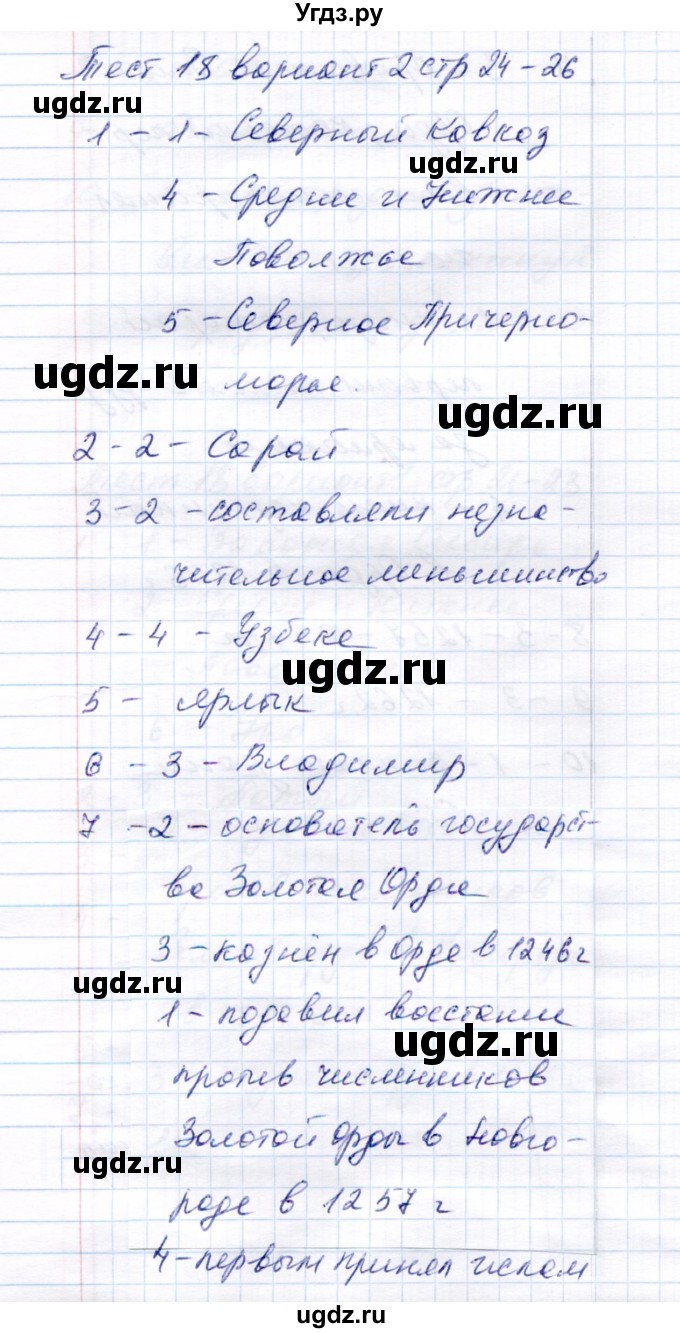 Угдз.ру
Тест 18 вариант 2 стр 24-26
ugdz.ru
1 - 1 - Северный Кавказ
ugdz.ru
4 - Средние и Нижние
Поволжье
5 - Северное Причерно-
ugdz.ru
морье.
ugdz.ru
2 - 2 - Сарай
3 - 2 - составляли незна-
чительное меньшинство
4 - 4 - Узбеке
ugdz.ru
5 - ярлык
6 - 3 - Владимир
7 - 2 - основатель государст-
ва Золотая Орда
3 - казнён в Орде в 1246 г
ugdz.ru
1 - подавил восстание
ugdz.ru
против численников
Золотой Орды в Новго-
ugdz.ru
роде в 1257 г
4 - первым принял ислам
ugdz.ru